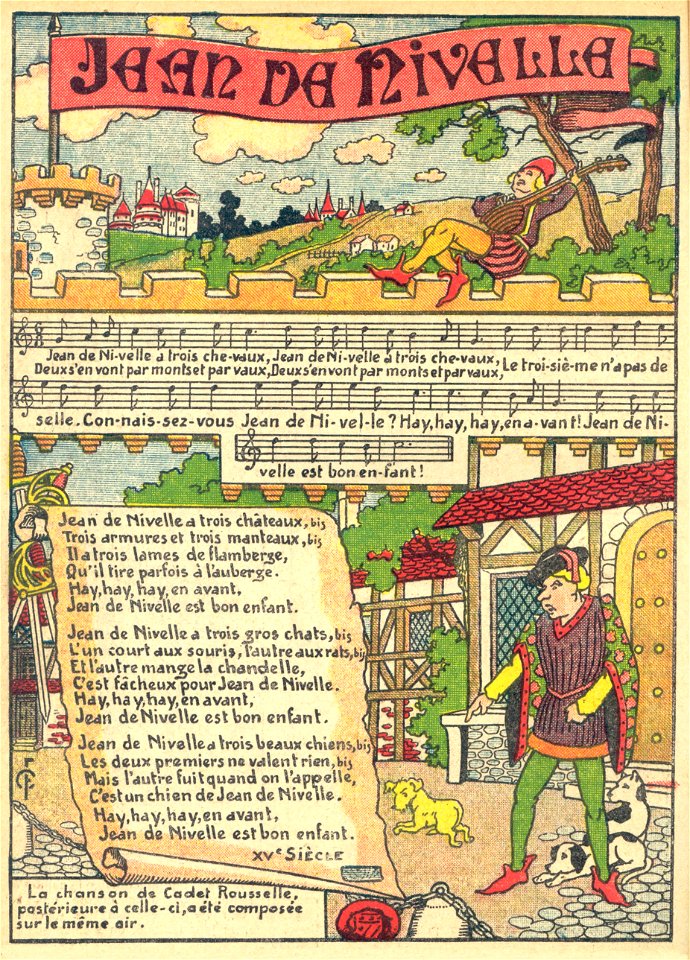 JEAN DE NIVELLE
Jean de Ni-velle a trois che-vaux, Jean de Ni-velle à trois che-vaux,
Deux s'en vont par monts et par vaux, Deux s'en vont par monts et par vaux, Le troi-siè-me n'a pas de
selle. Con-nais-sez-vous Jean de Ni-vel-le? Hay, hay, hay, en a-vant! Jean de Ni-
velle est bon en-fant!
Jean de Nivelle a trois châteaux, bis
Trois armures et trois manteaux, bis
Il a trois lames de flamberge,
Qu'il tire parfois à l'auberge.
Hay, hay, hay, en avant,
Jean de Nivelle est bon enfant.
Jean de Nivelle a trois gros chats, bis
L'un court aux souris, l'autre aux rats, bis
Et l'autre mange la chandelle,
C'est fâcheux pour Jean de Nivelle.
Hay, hay, hay, en avant,
Jean de Nivelle est bon enfant.
Jean de Nivelle a trois beaux chiens, bis
Les deux premiers ne valent rien, bis
Mais l'autre fuit quand on l'appelle,
C'est un chien de Jean de Nivelle.
Hay, hay, hay, en avant,
Jean de Nivelle est bon enfant.
XVe SIÈCLE
La chanson de Cadet Rousselle,
postérieure à celle-ci, a été composée
sur le même air.